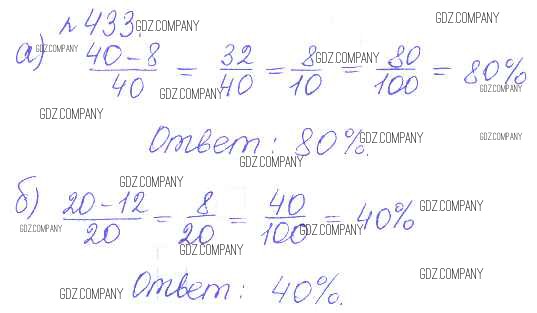 №433. GDZ.COMPANY GDZ.COMPANY
а) GDZ.COMPANY (40-8)/40 = 32/40 = 8/10 = 80/100 = 80%
GDZ.COMPANY GDZ.COMPANY GDZ.COMPANY
GDZ.COMPANY
Ответ: 80%. GDZ.COMPANY GDZ.COMPANY
GDZ.COMPANY
GDZ.COMPANY
б) (20-12)/20 = 8/20 = 40/100 = 40% GDZ.COMPANY
GDZ.COMPANY GDZ.COMPANY
GDZ.COMPANY
GDZ.COMPANY
GDZ.COMPANY Ответ: 40%.